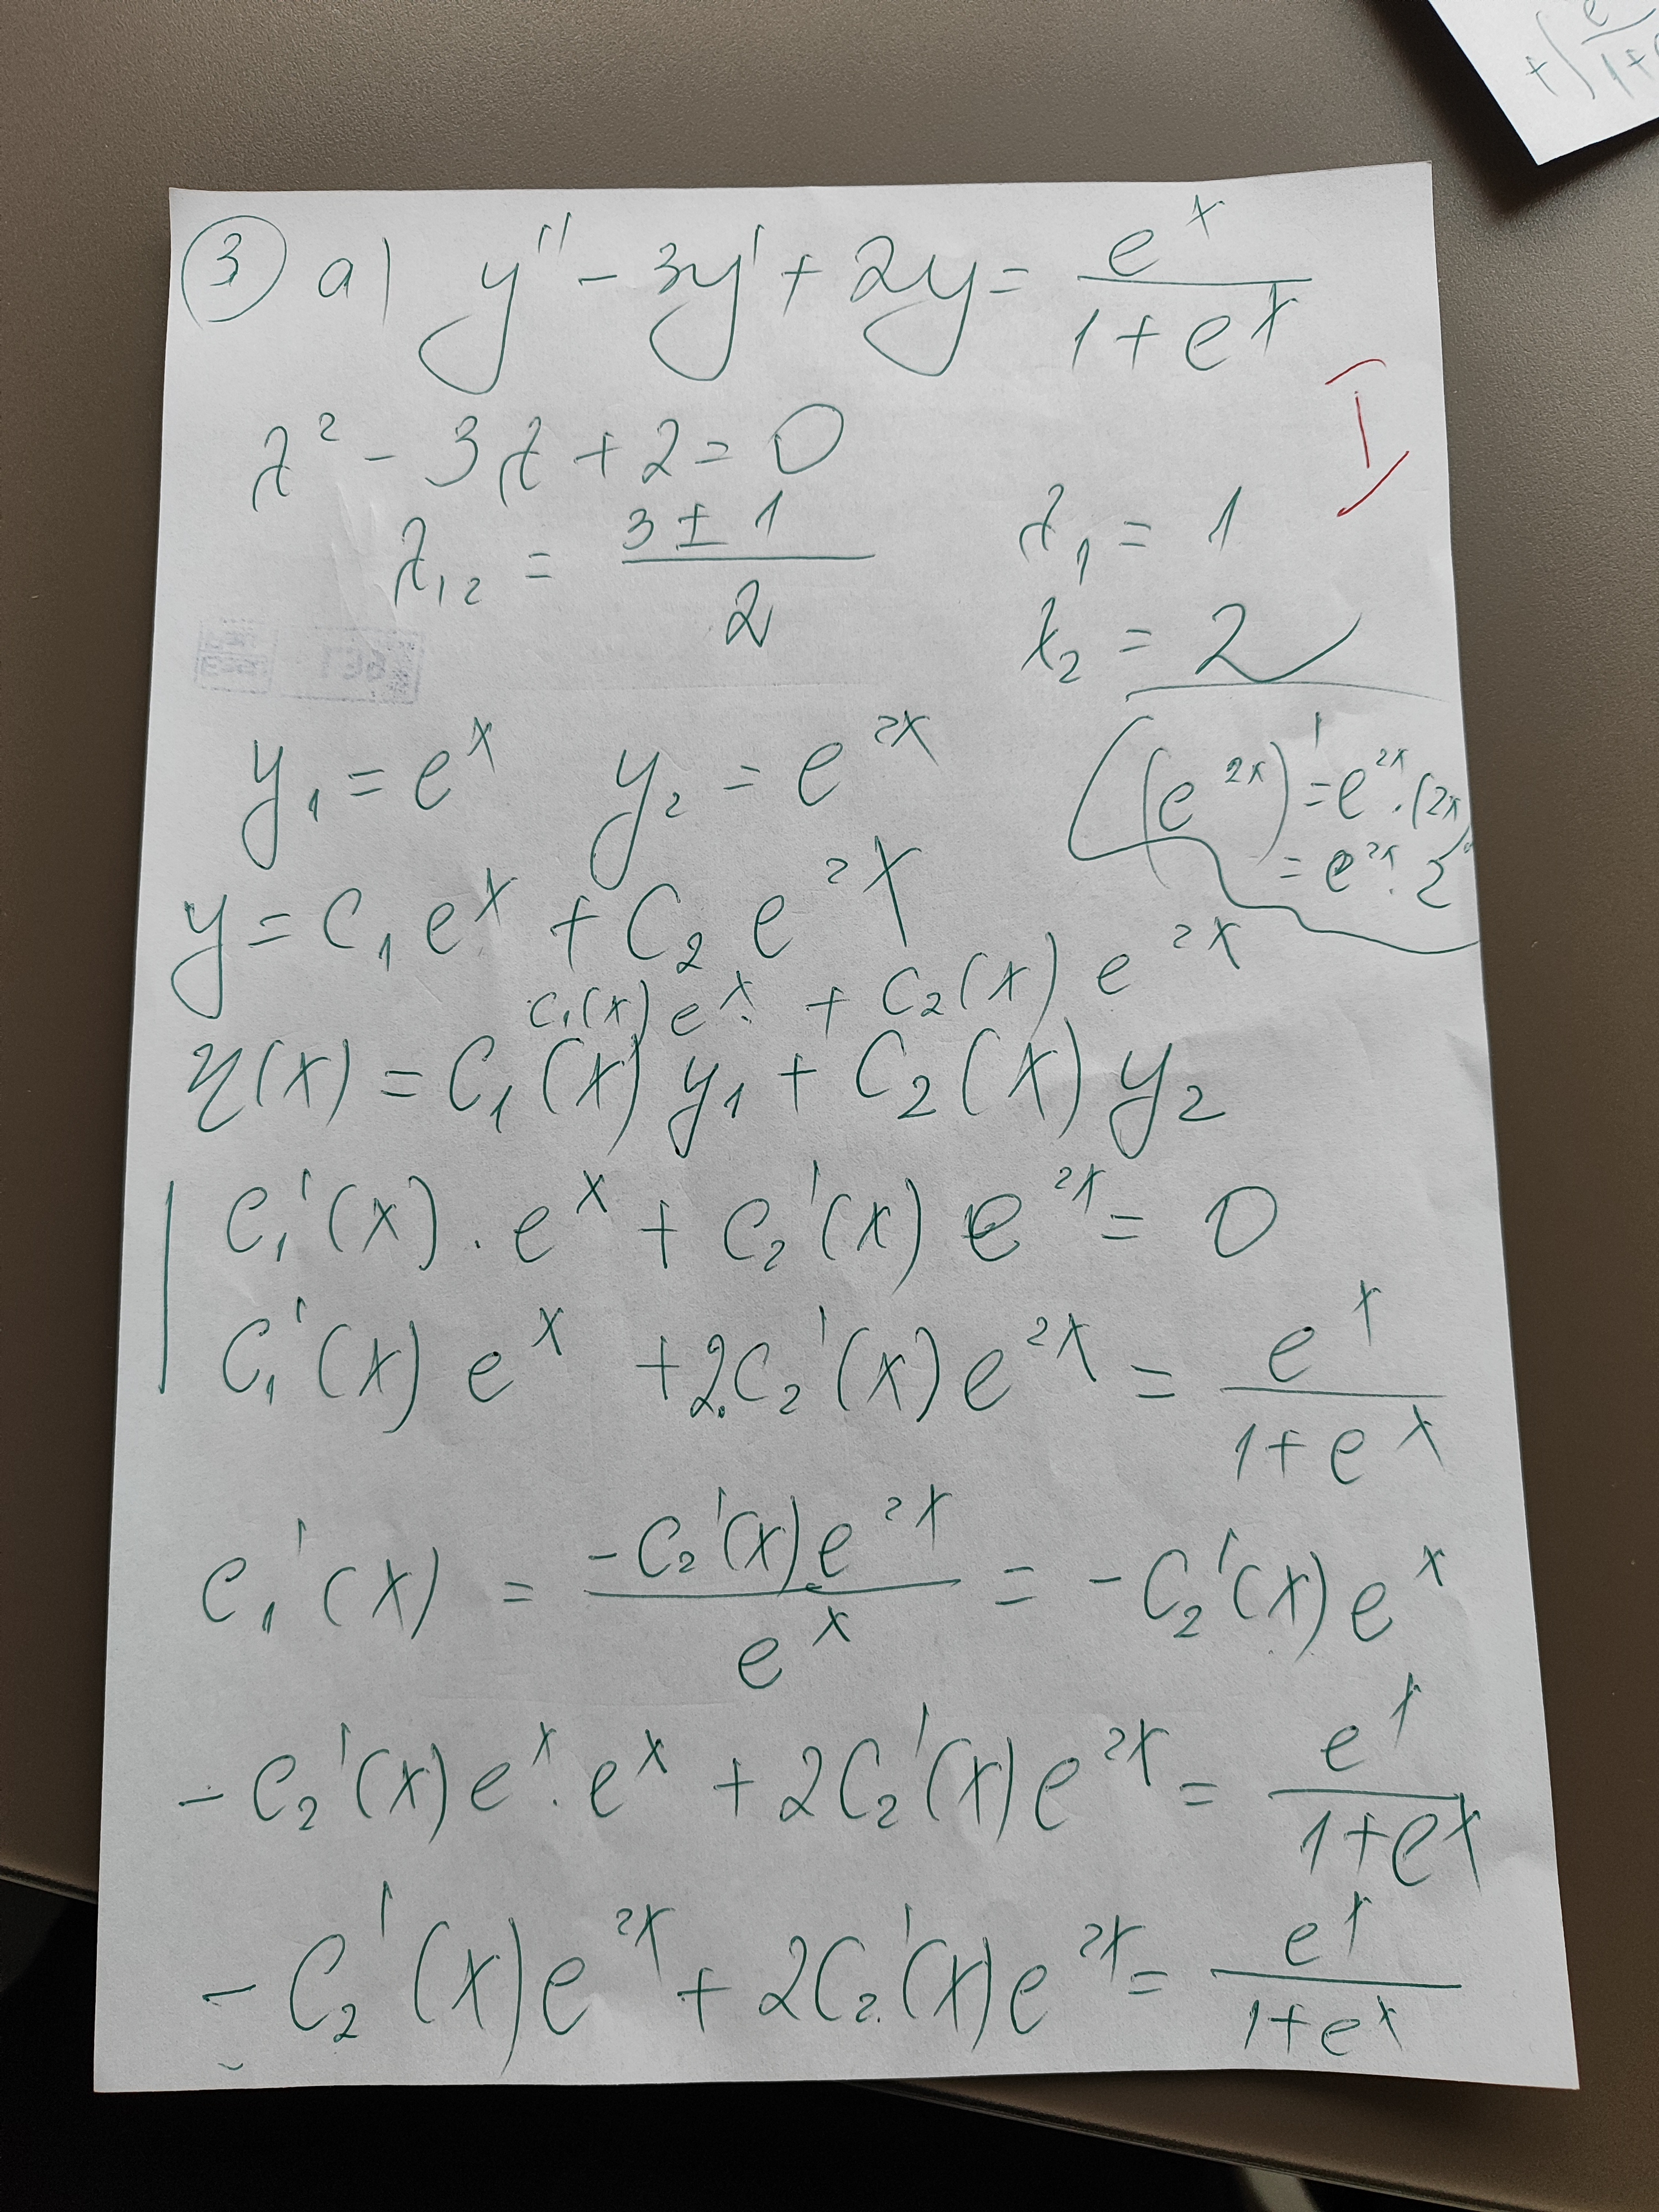 ③ a) y'' - 3y' + 2y = e^x / (1 + e^x)
I
λ² - 3λ + 2 = 0
λ₁₂ = (3 ± 1) / 2
λ₁ = 1
λ₂ = 2
y₁ = e^x y₂ = e^(2x)
(e^(2x))' = e^(2x) · (2x)'
= e^(2x) · 2
y = C₁ e^x + C₂ e^(2x)
C₁(x) e^x + C₂(x) e^(2x)
η(x) = C₁(x) y₁ + C₂(x) y₂
C₁'(x) · e^x + C₂'(x) e^(2x) = 0
C₁'(x) e^x + 2·C₂'(x) e^(2x) = e^x / (1 + e^x)
C₁'(x) = -C₂'(x) e^(2x) / e^x = -C₂'(x) e^x
-C₂'(x) e^x · e^x + 2C₂'(x) e^(2x) = e^x / (1 + e^x)
-C₂'(x) e^(2x) + 2C₂'(x) e^(2x) = e^x / (1 + e^x)